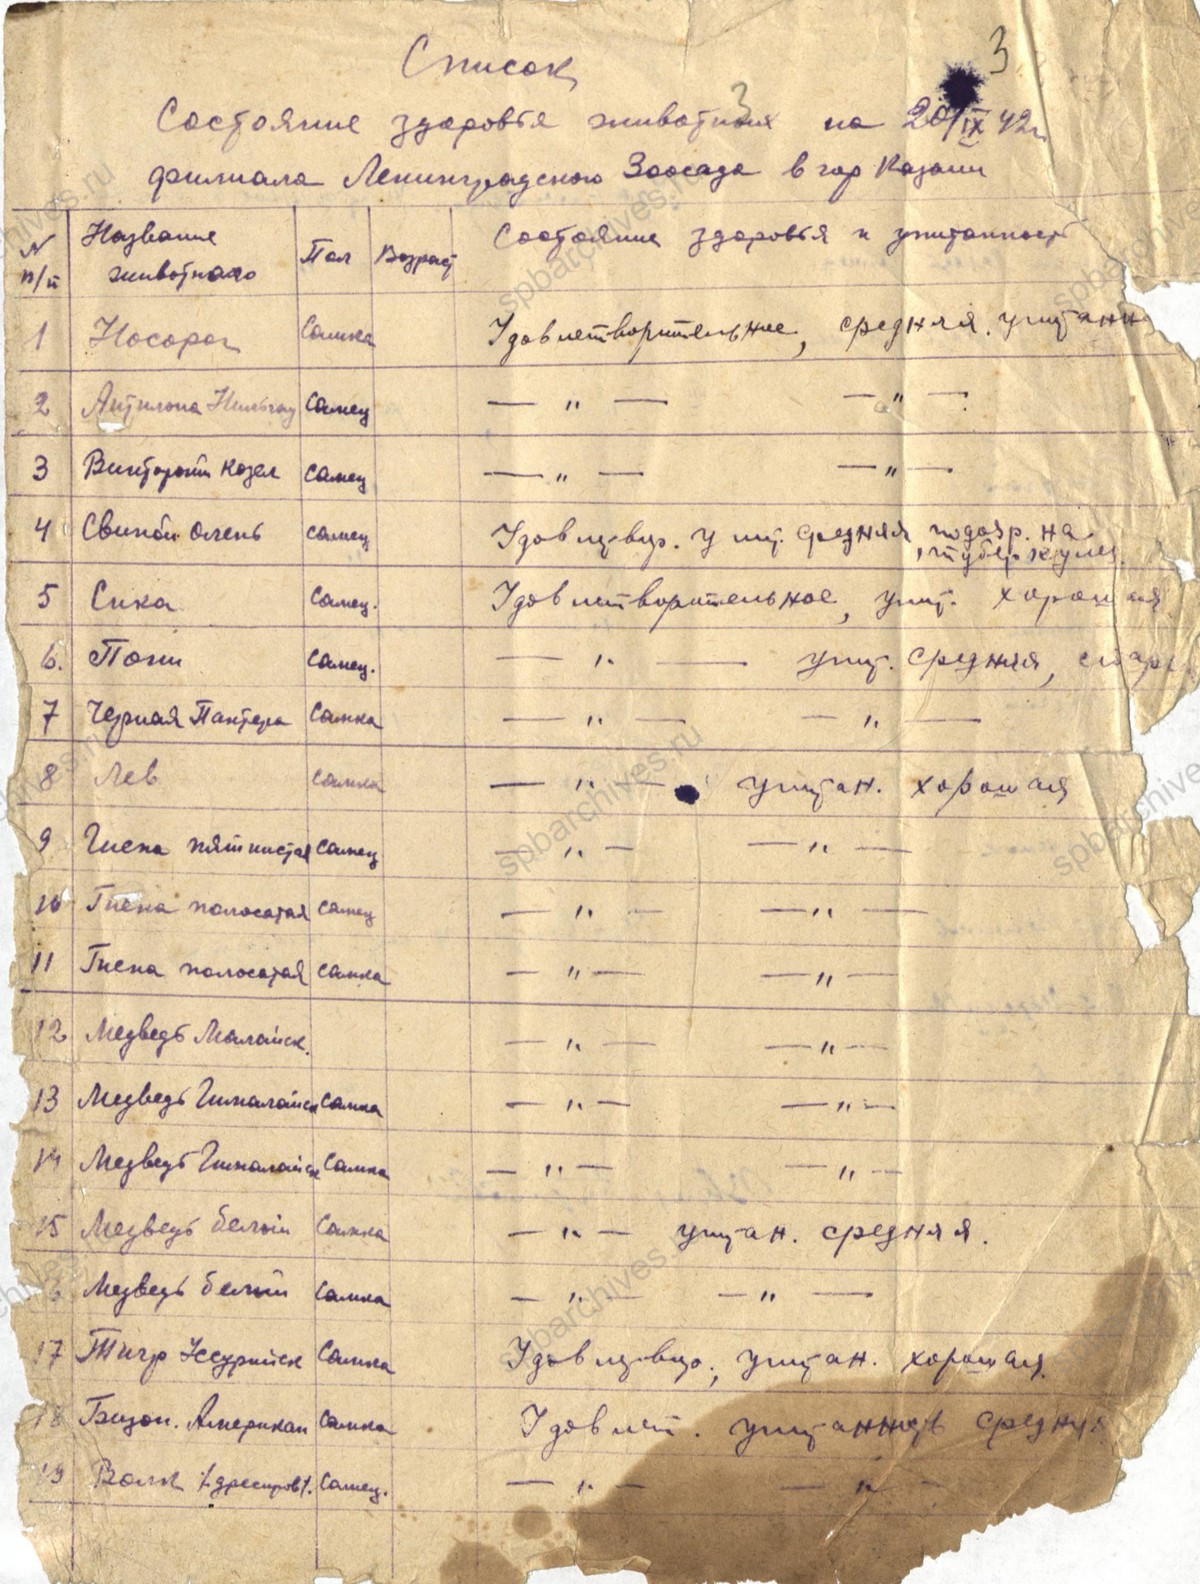 3
Список
3
Состояние здоровья животных на 20/IX 42г.
филиала Ленинградского Зоосада в гор Казани
N п/п Название животного Пол Возраст Состояние здоровья и упитанност
1 Носорог самка Удовлетворительное, средняя упитанно
2 Антилопа Нильгау самец — " — — " —
3 Винторогий козел самец — " — — " —
4 Свиной олень самец Удовлетвор. упит. средняя, подозр. на туберкулез.
5 Сика самец. Удовлетворительное, упит. хорошая
6. Пони самец. — " — упит. средняя, стар
7 Черная Пантера самка — " — — " —
8 Лев самка — " — упитан. хорошая
9 Гиена пятнистая самец — " — — " —
10 Гиена полосатая самец — " — — " —
11 Гиена полосатая самка — " — — " —
12 Медведь Малайск. — " — — " —
13 Медведь Гималайск самка — " — — " —
14 Медведь Гималайск самка — " — — " —
15 Медведь белый самка — " — упитан. средняя.
6 Медведь белый самка — " — — " —
17 Тигр Уссурийск самка Удовлетвор., упитан. хорошая.
18 Бизон. Американ самка Удовлет. упитанность средняя
19 Волк /дрессиров/. самец. — " — — " —
spbarchives.ru
spbarchives.ru
spbarchives.ru
spbarchives.ru
spbarchives.ru
spbarchives.ru
spbarchives.ru